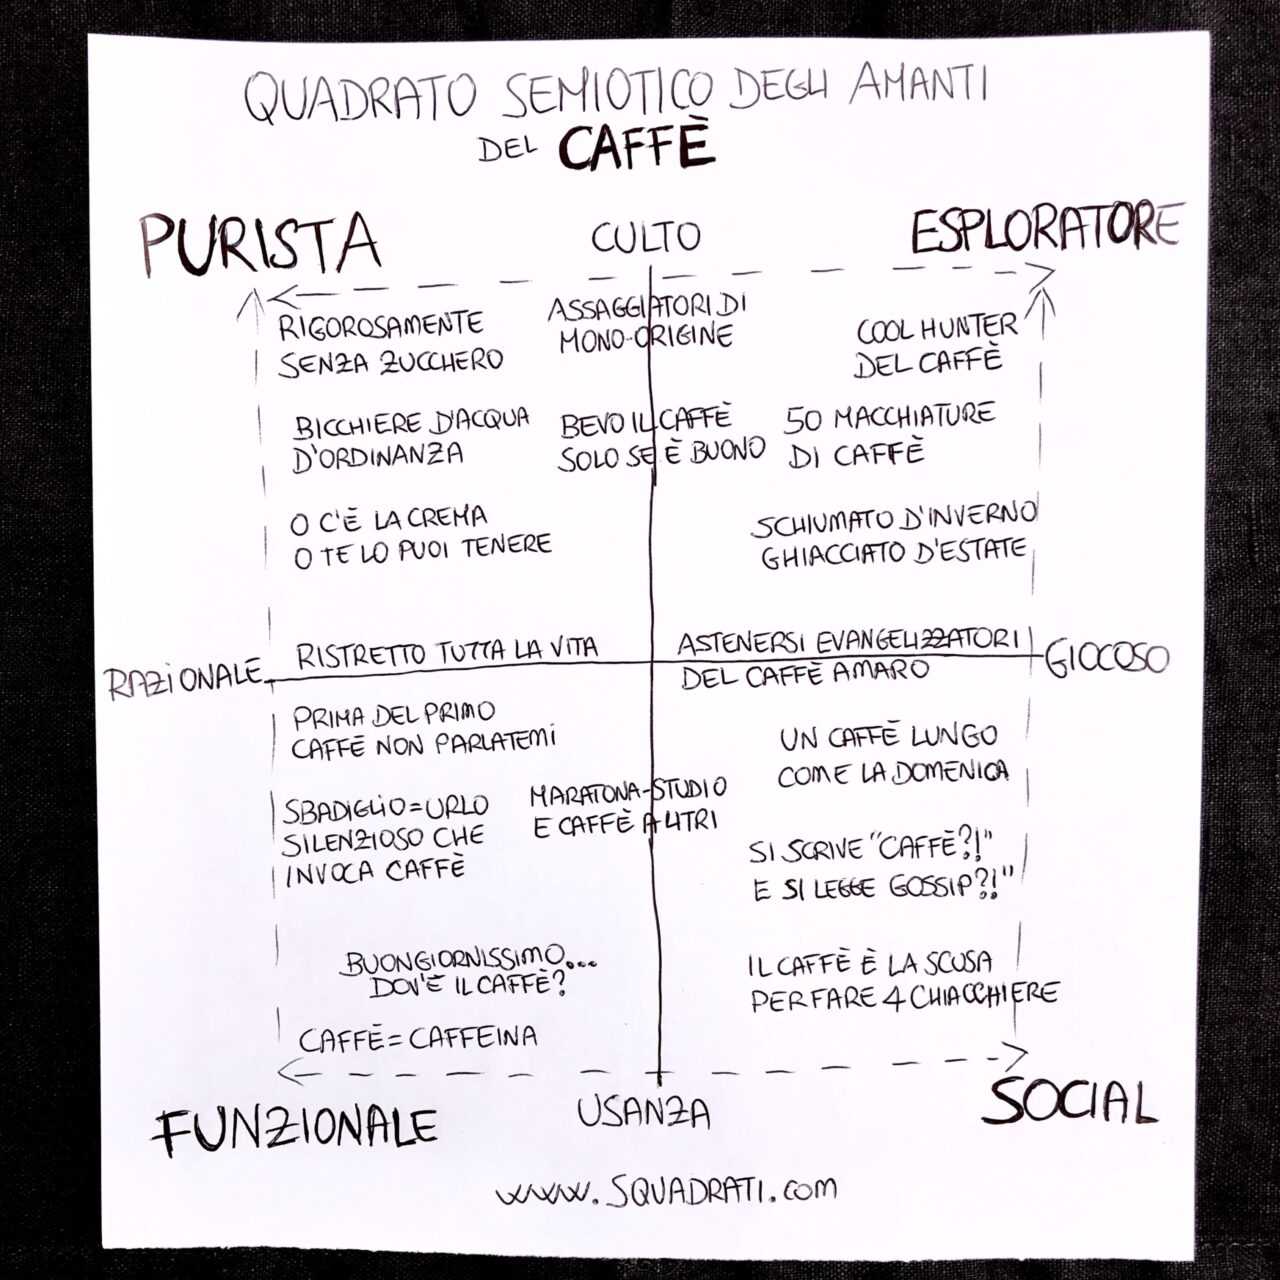 QUADRATO SEMIOTICO DEGLI AMANTI
DEL CAFFÈ
PURISTA
CULTO
ESPLORATORE
RIGOROSAMENTE
SENZA ZUCCHERO
ASSAGGIATORI DI
MONO-ORIGINE
COOL HUNTER
DEL CAFFÈ
BICCHIERE D'ACQUA
D'ORDINANZA
BEVO IL CAFFÈ
SOLO SE È BUONO
50 MACCHIATURE
DI CAFFÈ
O C'È LA CREMA
O TE LO PUOI TENERE
SCHIUMATO D'INVERNO
GHIACCIATO D'ESTATE
RAZIONALE
RISTRETTO TUTTA LA VITA
ASTENERSI EVANGELIZZATORI
DEL CAFFÈ AMARO
GIOCOSO
PRIMA DEL PRIMO
CAFFÈ NON PARLATEMI
UN CAFFÈ LUNGO
COME LA DOMENICA
SBADIGLIO = URLO
SILENZIOSO CHE
INVOCA CAFFÈ
MARATONA-STUDIO
E CAFFÈ A LITRI
SI SCRIVE "CAFFÈ?!"
E SI LEGGE GOSSIP?!"
BUONGIORNISSIMO...
DOV'È IL CAFFÈ?
IL CAFFÈ È LA SCUSA
PER FARE 4 CHIACCHIERE
CAFFÈ = CAFFEINA
FUNZIONALE
USANZA
SOCIAL
www.SQUADRATI.com